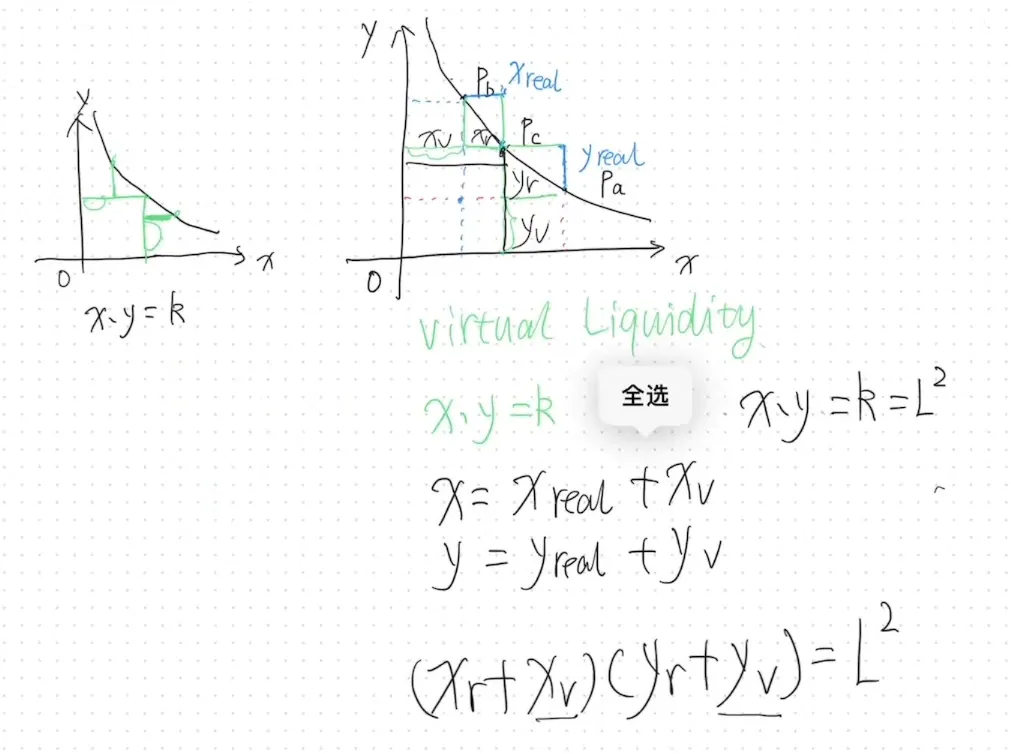 y
0
x
x、y = k
y
Pb
x real
xv
xr
Pc
y real
yr
Pa
yv
0
x
virtual Liquidity
x、y = k
全选
x、y = k = L²
x = x real + xv
y = y real + yv
(xr + xv)(yr + yv) = L²